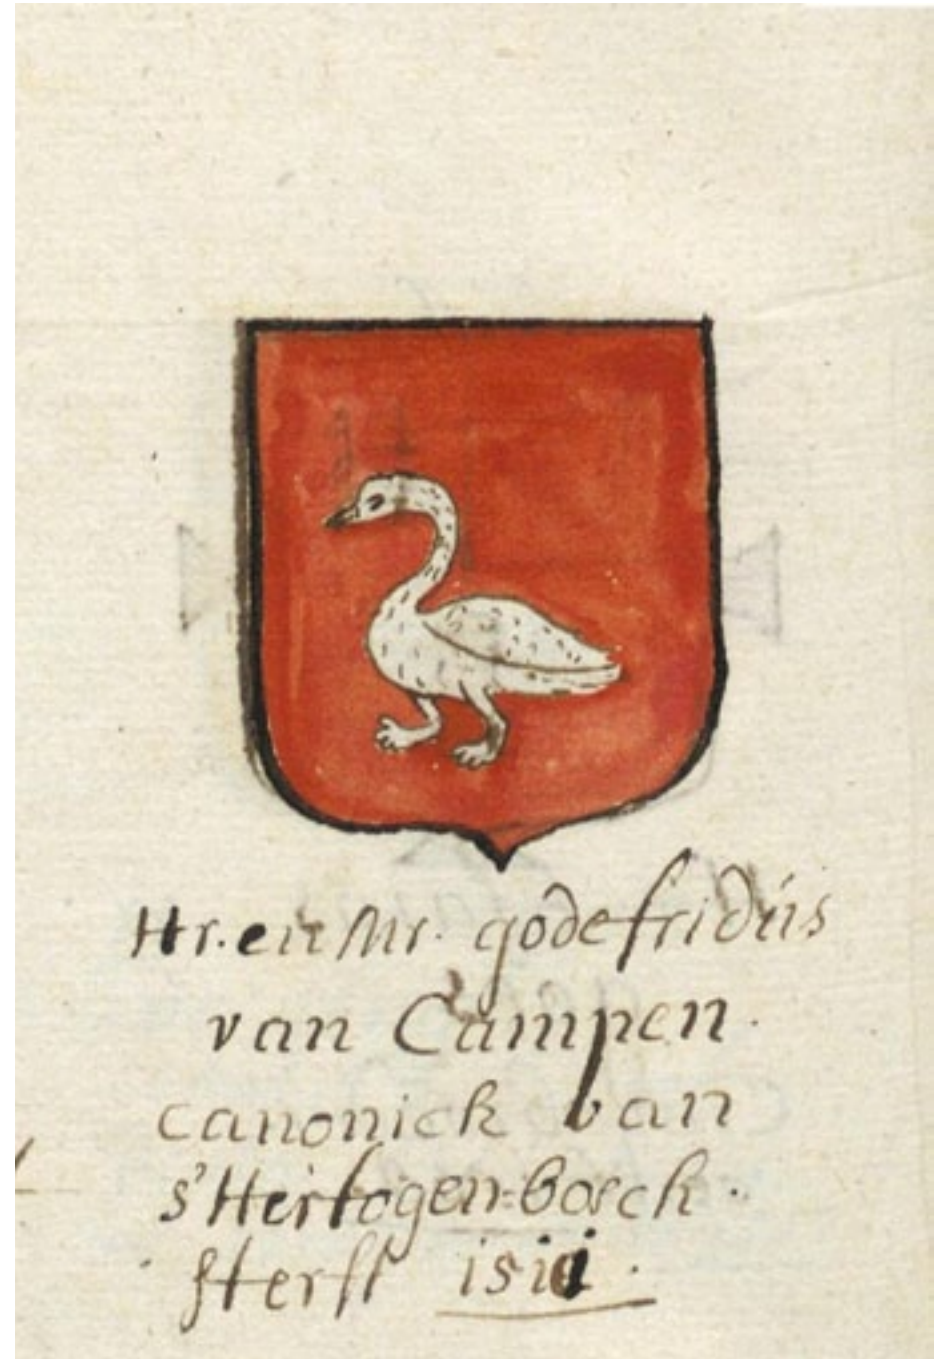 Hr. en Mr. godefridús
van Campen.
canonick van
s'Hertogen=bosch.
sterft